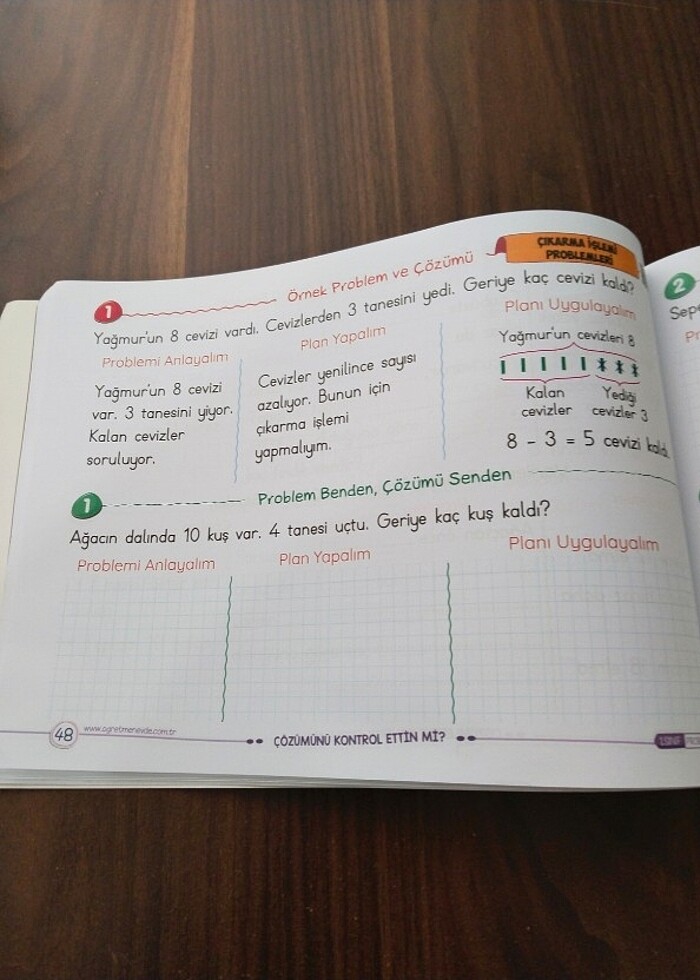 ÇIKARMA İŞLEMİ
PROBLEMLERİ
1 Örnek Problem ve Çözümü
Yağmur'un 8 cevizi vardı. Cevizlerden 3 tanesini yedi. Geriye kaç cevizi kaldı?
Problemi Anlayalım
Yağmur'un 8 cevizi
var. 3 tanesini yiyor.
Kalan cevizler
soruluyor.
Plan Yapalım
Cevizler yenilince sayısı
azalıyor. Bunun için
çıkarma işlemi
yapmalıyım.
Planı Uygulayalım
Yağmur'un cevizleri 8
Kalan
cevizler
Yediği
cevizler 3
8 - 3 = 5 cevizi kaldı.
1 Problem Benden, Çözümü Senden
Ağacın dalında 10 kuş var. 4 tanesi uçtu. Geriye kaç kuş kaldı?
Problemi Anlayalım
Plan Yapalım
Planı Uygulayalım
48
www.ogretmenevde.com.tr
ÇÖZÜMÜNÜ KONTROL ETTİN Mİ?
1.SINIF
2